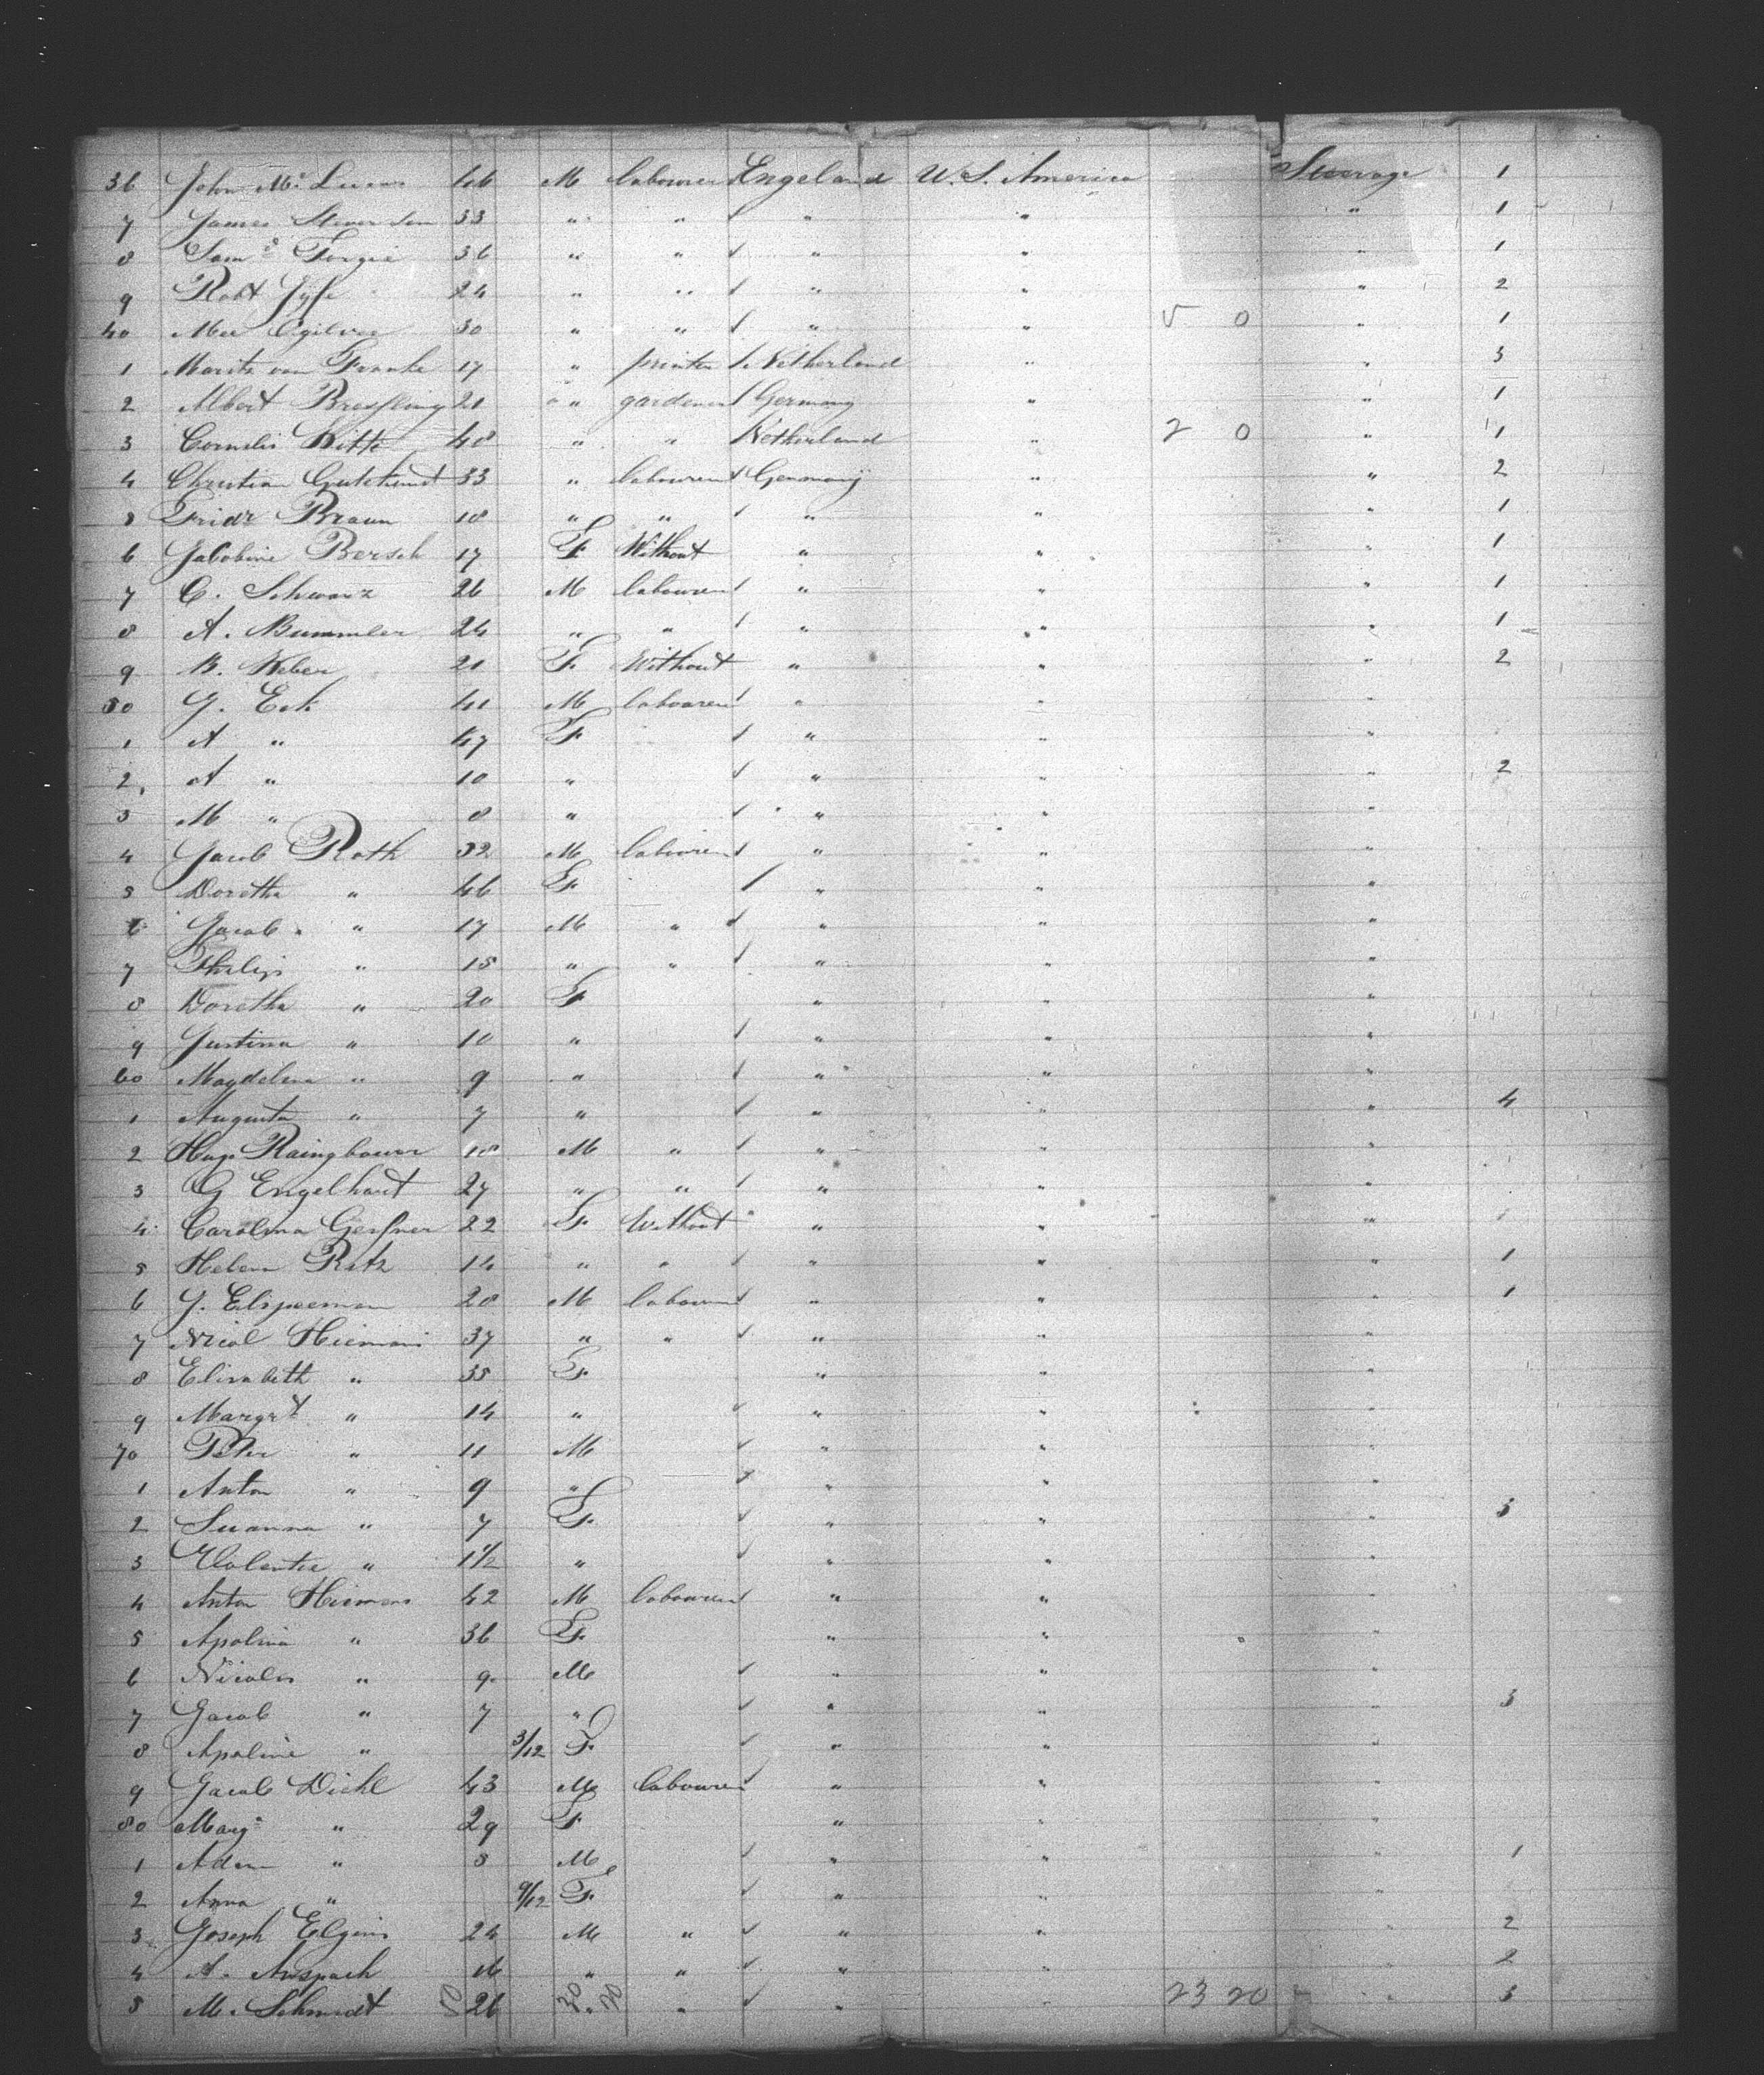 36 John Mc Lucas 46 M labourer Engeland U. S. America Steerage 1
7 James Stevenson 33 " " " " " 1
8 Saml Forgie 36 " " " " " 1
9 Robt Fyfe 24 " " " " " 2
40 Ogilvie 30 " " " " 5 0 " 1
1 Moritz van Franke 17 " printer Netherland " " 3
2 Albert Bressling 21 " gardener Germany " " 1
3 Cornelis Witte 48 " " Netherland " 2 0 " 1
4 Christian Gutekunst 33 " labourer Germany " " 2
5 Friedr Braun 18 " " " " " 1
6 Jacobine Bersch 17 F Without " " " 1
7 C. Schwarz 26 M labourer " " " 1
8 A. Bummler 24 " " " " " 1
9 B. Weber 21 F Without " " " 2
50 G. Eck 41 M labourer " " "
1 A " 47 F " " "
2 A " 10 " " " " 2
3 M " 8 " " " "
4 Jacob Roth 52 M labourer " " "
5 Dorotha " 46 F " " "
6 Jacob " 17 M " " " "
7 Philip " 15 " " " " "
8 Dorotha " 20 F " " "
9 Justina " 10 " " " "
60 Magdelena " 9 " " " "
1 Augusta " 7 " " " " 4
2 18 M " " " "
3 G Engelhart 27 " " " " "
4 Carolina Gessner 22 F Without " " "
5 Helena Retz 14 " " " " " 1
6 28 M labourer " " " 1
7 Nicol Hiemans 37 " " " " "
8 Elisabeth " 35 F " " "
9 Margrt " 14 " " " "
70 Peter " 11 M " " "
1 Anton " 9 " " " "
2 Suanna " 7 F " " " 5
3 " 1 1/2 " " " "
4 Anton Hiemans 42 M labourer " " "
5 Apolina " 36 F " " "
6 Nicolas " 9 M " " "
7 Jacob " 7 " " " " 3
8 Apoline " 3/12 F " " "
9 Jacob Diehl 43 M labourer " " "
80 Marg " 29 F " " "
1 Adam " 5 M " " " 1
2 Anna " 9/12 F " " "
3 Joseph Elgins 24 M " " " " 2
4 A. Anspach " " " " " 2
5 M. Schmidt 26 " " " " 23 20 " 3